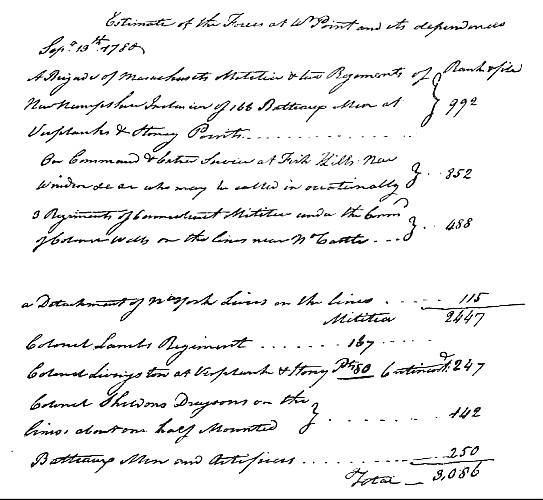 Estimate of the Forces at Wt Point and its dependences
Sepr 13th 1780
A Brigade of Massachusets Militia & two Regiments of Rank & file
New Hampshire Inclusive of 166 Batteaux Men at } 992
Verplanks & Stoney Points
On Command & Extra Service at Fish Kills New
Windsor &c &c who may be called in occationally } 852
3 Regiments of Connecticut Militia under the Comd
of Colonel Wells on the lines near N. Castle } 488
a Detachment of N York Levies on the lines 115
Militia 2447
Colonel Lambs Regiment 167
Colonel Livingston at Verplank & Stoney Pts 80 Continent: 247
Colonel Sheldons Dragoons on the
lines, about one half Mounted } 142
Batteaux Men and Artificers 250
Total 3,086